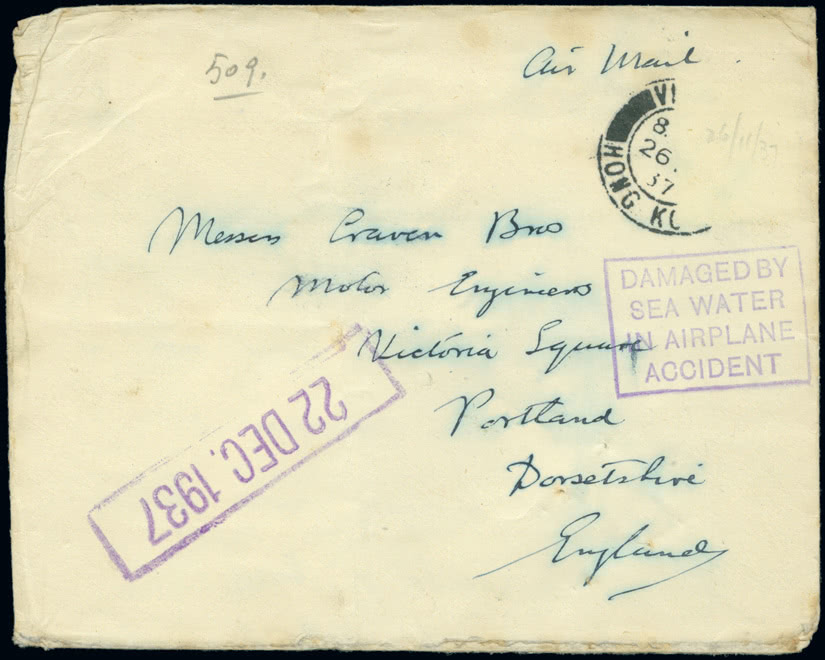 509.
Air Mail
VI
8.
26.
37
HONG KO
26/11/37
Messrs Craven Bros
Motor Engineers
Victoria Square
Portland
Dorsetshire
England
DAMAGED BY
SEA WATER
IN AIRPLANE
ACCIDENT
22 DEC. 1937